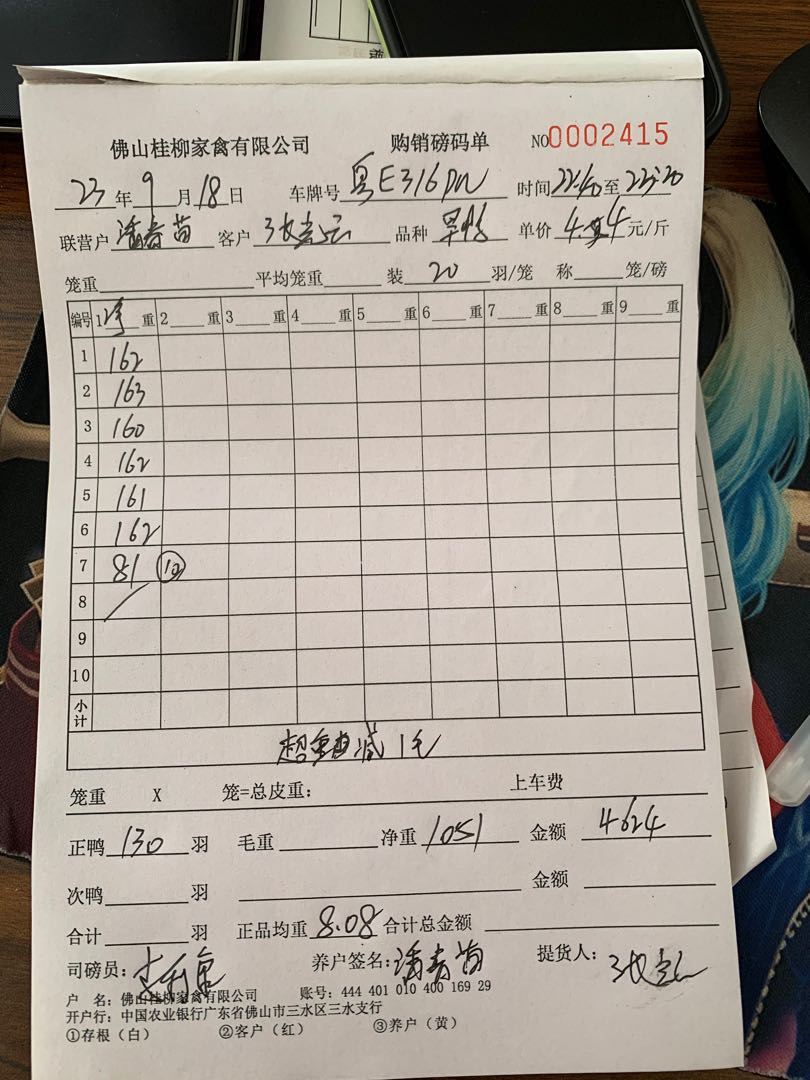 佛山桂柳家禽有限公司 购销磅码单 NO0002415
23年9月18日 车牌号 粤E316 时间22:10至22:20
联营户 潘春苗 客户 张 品种 旱鸭 单价 4.4 元/斤
笼重 平均笼重 装 20 羽/笼 称 笼/磅
编号 1净重 2 重 3 重 4 重 5 重 6 重 7 重 8 重 9 重
1 162
2 163
3 160
4 162
5 161
6 162
7 81 ⑩
8
9
10
小计
超重减1毛
笼重 X 笼=总皮重: 上车费
正鸭 130 羽 毛重 净重 1051 金额 4624
次鸭 羽 金额
合计 羽 正品均重 8.08 合计总金额
司磅员: 养户签名: 潘春苗 提货人: 张
户 名: 佛山桂柳家禽有限公司 账号: 444 401 010 400 169 29
开户行: 中国农业银行广东省佛山市三水区三水支行
①存根(白) ②客户(红) ③养户(黄)